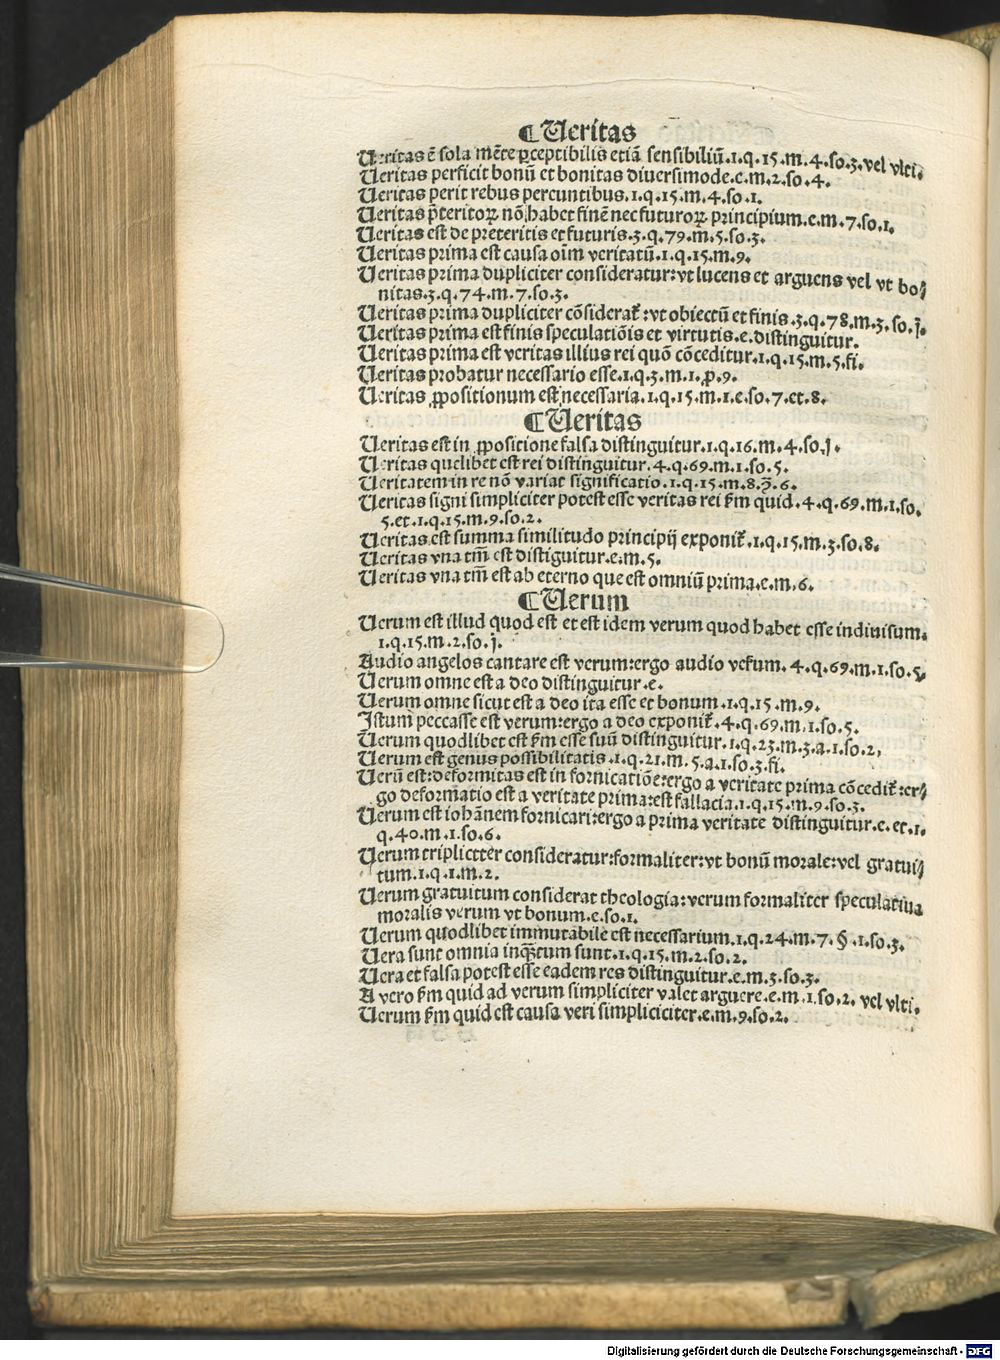 ¶ Ueritas
Ueritas ē sola mēte ꝑceptibilis etiā sensibiliū.1.q.15.m.4.so.3.vel vlti.
Ueritas perficit bonū et bonitas diuersimode.e.m.2.so.4.
Ueritas perit rebus pereuntibus.1.q.15.m.4.so.1.
Ueritas p̄teritoꝝ nō habet finē nec futuroꝝ principium.e.m.7.so.1.
Ueritas est de preteritis et futuris.3.q.79.m.5.so.3.
Ueritas prima est causa oīm veritatū.1.q.15.m.9.
Ueritas prima dupliciter consideratur:vt lucens et arguens vel vt bo⸗
nitas.3.q.74.m.7.so.3.
Ueritas prima dupliciter cōsiderat᷑:vt obiectū et finis.3.q.78.m.3.so.j.
Ueritas prima est finis speculatiōis et virtutis.e.distinguitur.
Ueritas prima est veritas illius rei quō cōceditur.1.q.15.m.5.fi.
Ueritas probatur necessario esse.1.q.3.m.1.p.9.
Ueritas ꝓpositionum est necessaria.1.q.15.m.1.e.so.7.et.8.
¶ Ueritas
Ueritas est in ꝓpositione falsa distinguitur.1.q.16.m.4.so.j.
Ueritas quelibet est rei distinguitur.4.q.69.m.1.so.5.
Ueritatem in re nō variat significatio.1.q.15.m.8.ꝙ̄.6.
Ueritas signi simpliciter potest esse veritas rei ẜm quid.4.q.69.m.1.so.
5.et.1.q.15.m.9.so.2.
Ueritas est summa similitudo principij exponit᷑.1.q.15.m.3.so.8.
Ueritas vna tm̄ est distiguitur.e.m.5.
Ueritas vna tm̄ est ab eterno que est omniū prima.e.m.6.
¶ Uerum
Uerum est illud quod est et est idem verum quod habet esse indiuisum.
1.q.15.m.2.so.j.
Audio angelos cantare est verum:ergo audio verum.4.q.69.m.1.so.5.
Uerum omne est a deo distinguitur.e.
Uerum omne sicut est a deo ita esse et bonum.1.q.15.m.9.
Istum peccasse est verum:ergo a deo exponit᷑.4.q.69.m.1.so.5.
Uerum quodlibet est ẜm esse suū distinguitur.1.q.23.m.3.a.1.so.2.
Uerum est genus possibilitatis.1.q.21.m.5.a.1.so.3.fi.
Uerū est:deformitas est in fornicatiōe:ergo a veritate prima cōcedit᷑:er⸗
go deformatio est a veritate prima:est fallacia.1.q.15.m.9.so.3.
Uerum est iohānem fornicari:ergo a prima veritate distinguitur.e.et.1.
q.40.m.1.so.6.
Uerum triplicter consideratur:formaliter:vt bonū morale:vel gratui⸗
tum.1.q.1.m.2.
Uerum gratuitum considerat theologia:verum formaliter speculatiua
moralis verum vt bonum.e.so.1.
Uerum quodlibet immutabile est necessarium.1.q.24.m.7.§.1.so.3.
Uera sunt omnia inqꝫtum sunt.1.q.15.m.2.so.2.
Uera et falsa potest esse eadem res distinguitur.e.m.3.so.3.
A vero ẜm quid ad verum simpliciter valet arguere.e.m.1.so.2.vel vlti.
Uerum ẜm quid est causa veri simpliciciter.e.m.9.so.2.
Digitalisierung gefördert durch die Deutsche Forschungsgemeinschaft - DFG